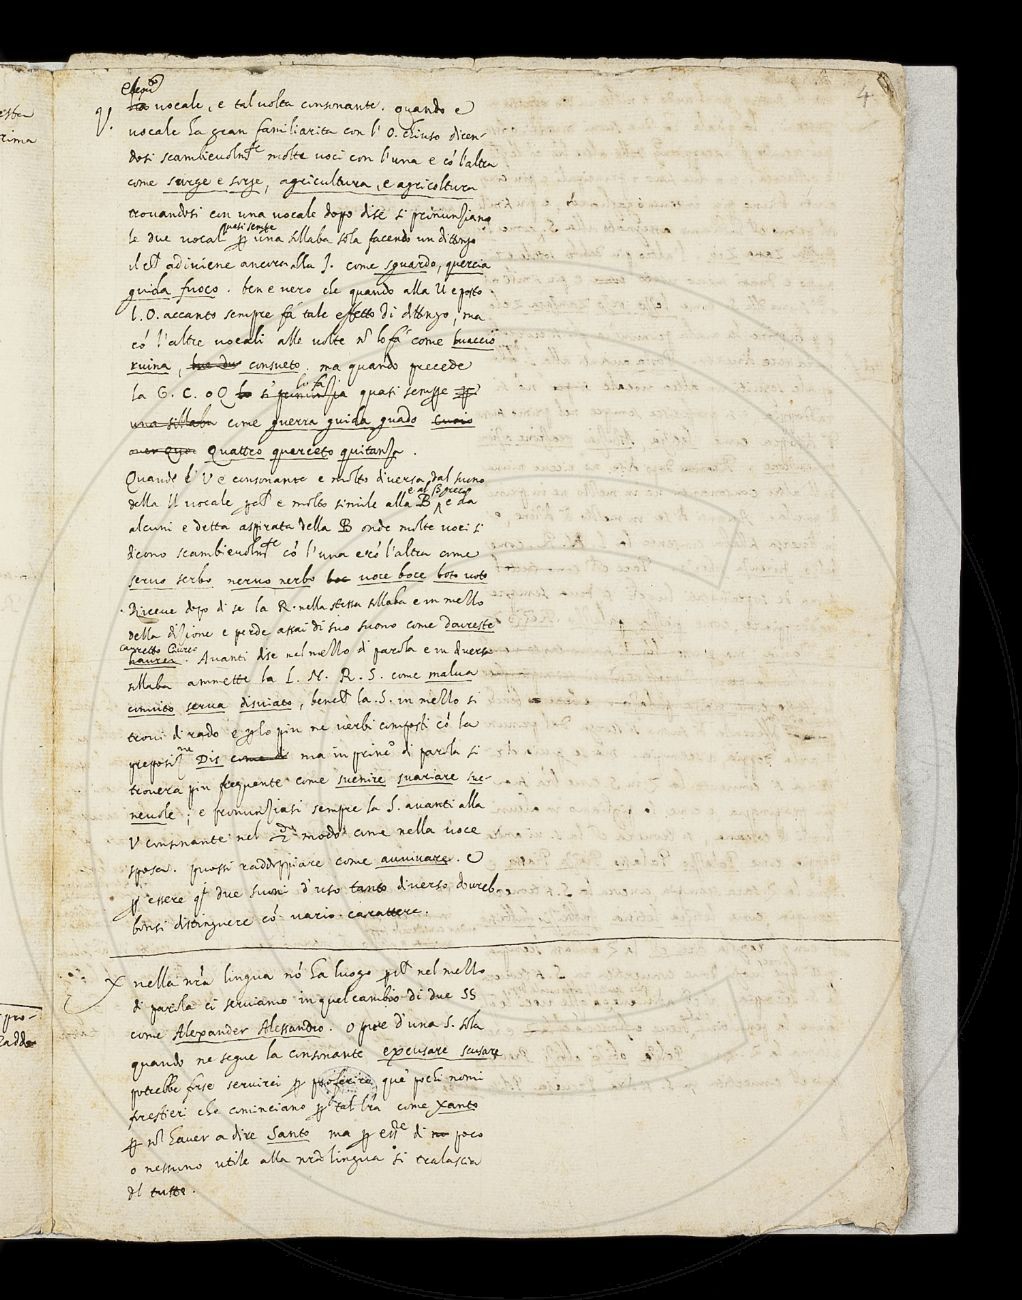 4
V. vocale, e tal volta consonante. quando e
vocale ha gran familiarita con l' O. chiuso dicen-
dosi scambieuolmte molte uoci con l'una e có l'altra
come surge e sorge, agricultura, e agricoltura
trouandosi con una vocale dopo di se si prununziano
le due vocali quasi sempre una sillaba sola facendo un dittongo
il che adiviene ancora alla I. come sguardo, quercia
guida fuoco. ben e vero che quando alla U e posto
l. O. accanto sempre fa tale effetto di dittongo, ma
có l'altre vocali alle volte nō lo fa come buaccio
ruina, consueto. ma quando precede
la G. C. o Q lo fa quasi sempre
una sillaba come guerra guida guado cuoio
Quattro querceto quitanza.
Quando l' V e consonante e molto diversa dal suono
della U vocale e molto simile alla B e al B greco e da
alcuni e detta aspirata della B onde molte uoci si
dicono scambieuolmte có l'una e có l'altra come
seruo serbo neruo nerbo boc uoce boce boto uoto
. Riceue dopo di se la R. nella stessa sillaba e in mezzo
della dizione e perde assai di suo suono come doureste
cauretto Cauree haurei. Auanti di se nel mezzo di parola e in diuersa
sillaba ammette la L. N. R. S. come malua
conuito serua disuiato, la S. in mezzo si
troui di rado e lo piu ne uerbi composti có la
preposizne Dis come di ma in princo di parola si
trouera piu frequente come suenire suariare sue-
neuole; e pronunziasi sempre la S. auanti alla
V consonante nel 2do modo come nella uoce
sposa. puossi raddoppiare come auuiuare. e
essere due suoni d'uso tanto diuerso doureb-
bonsi distinguere có uario carattere.
X nella nrā lingua nó ha luogo nel mezzo
di parola ci seruiamo in quel cambio di due SS
come Alexander Alessandro. o pure d'una S. sola
quando ne segue la consonante excusare scusare
potrebbe forse seruirci proferire que pochi nomi
forestieri che cominciano tal come Xanto
nō hauer a dire Santo ma di no poco
o nessuno utile alla nrā lingua si tralascia
del tutto.